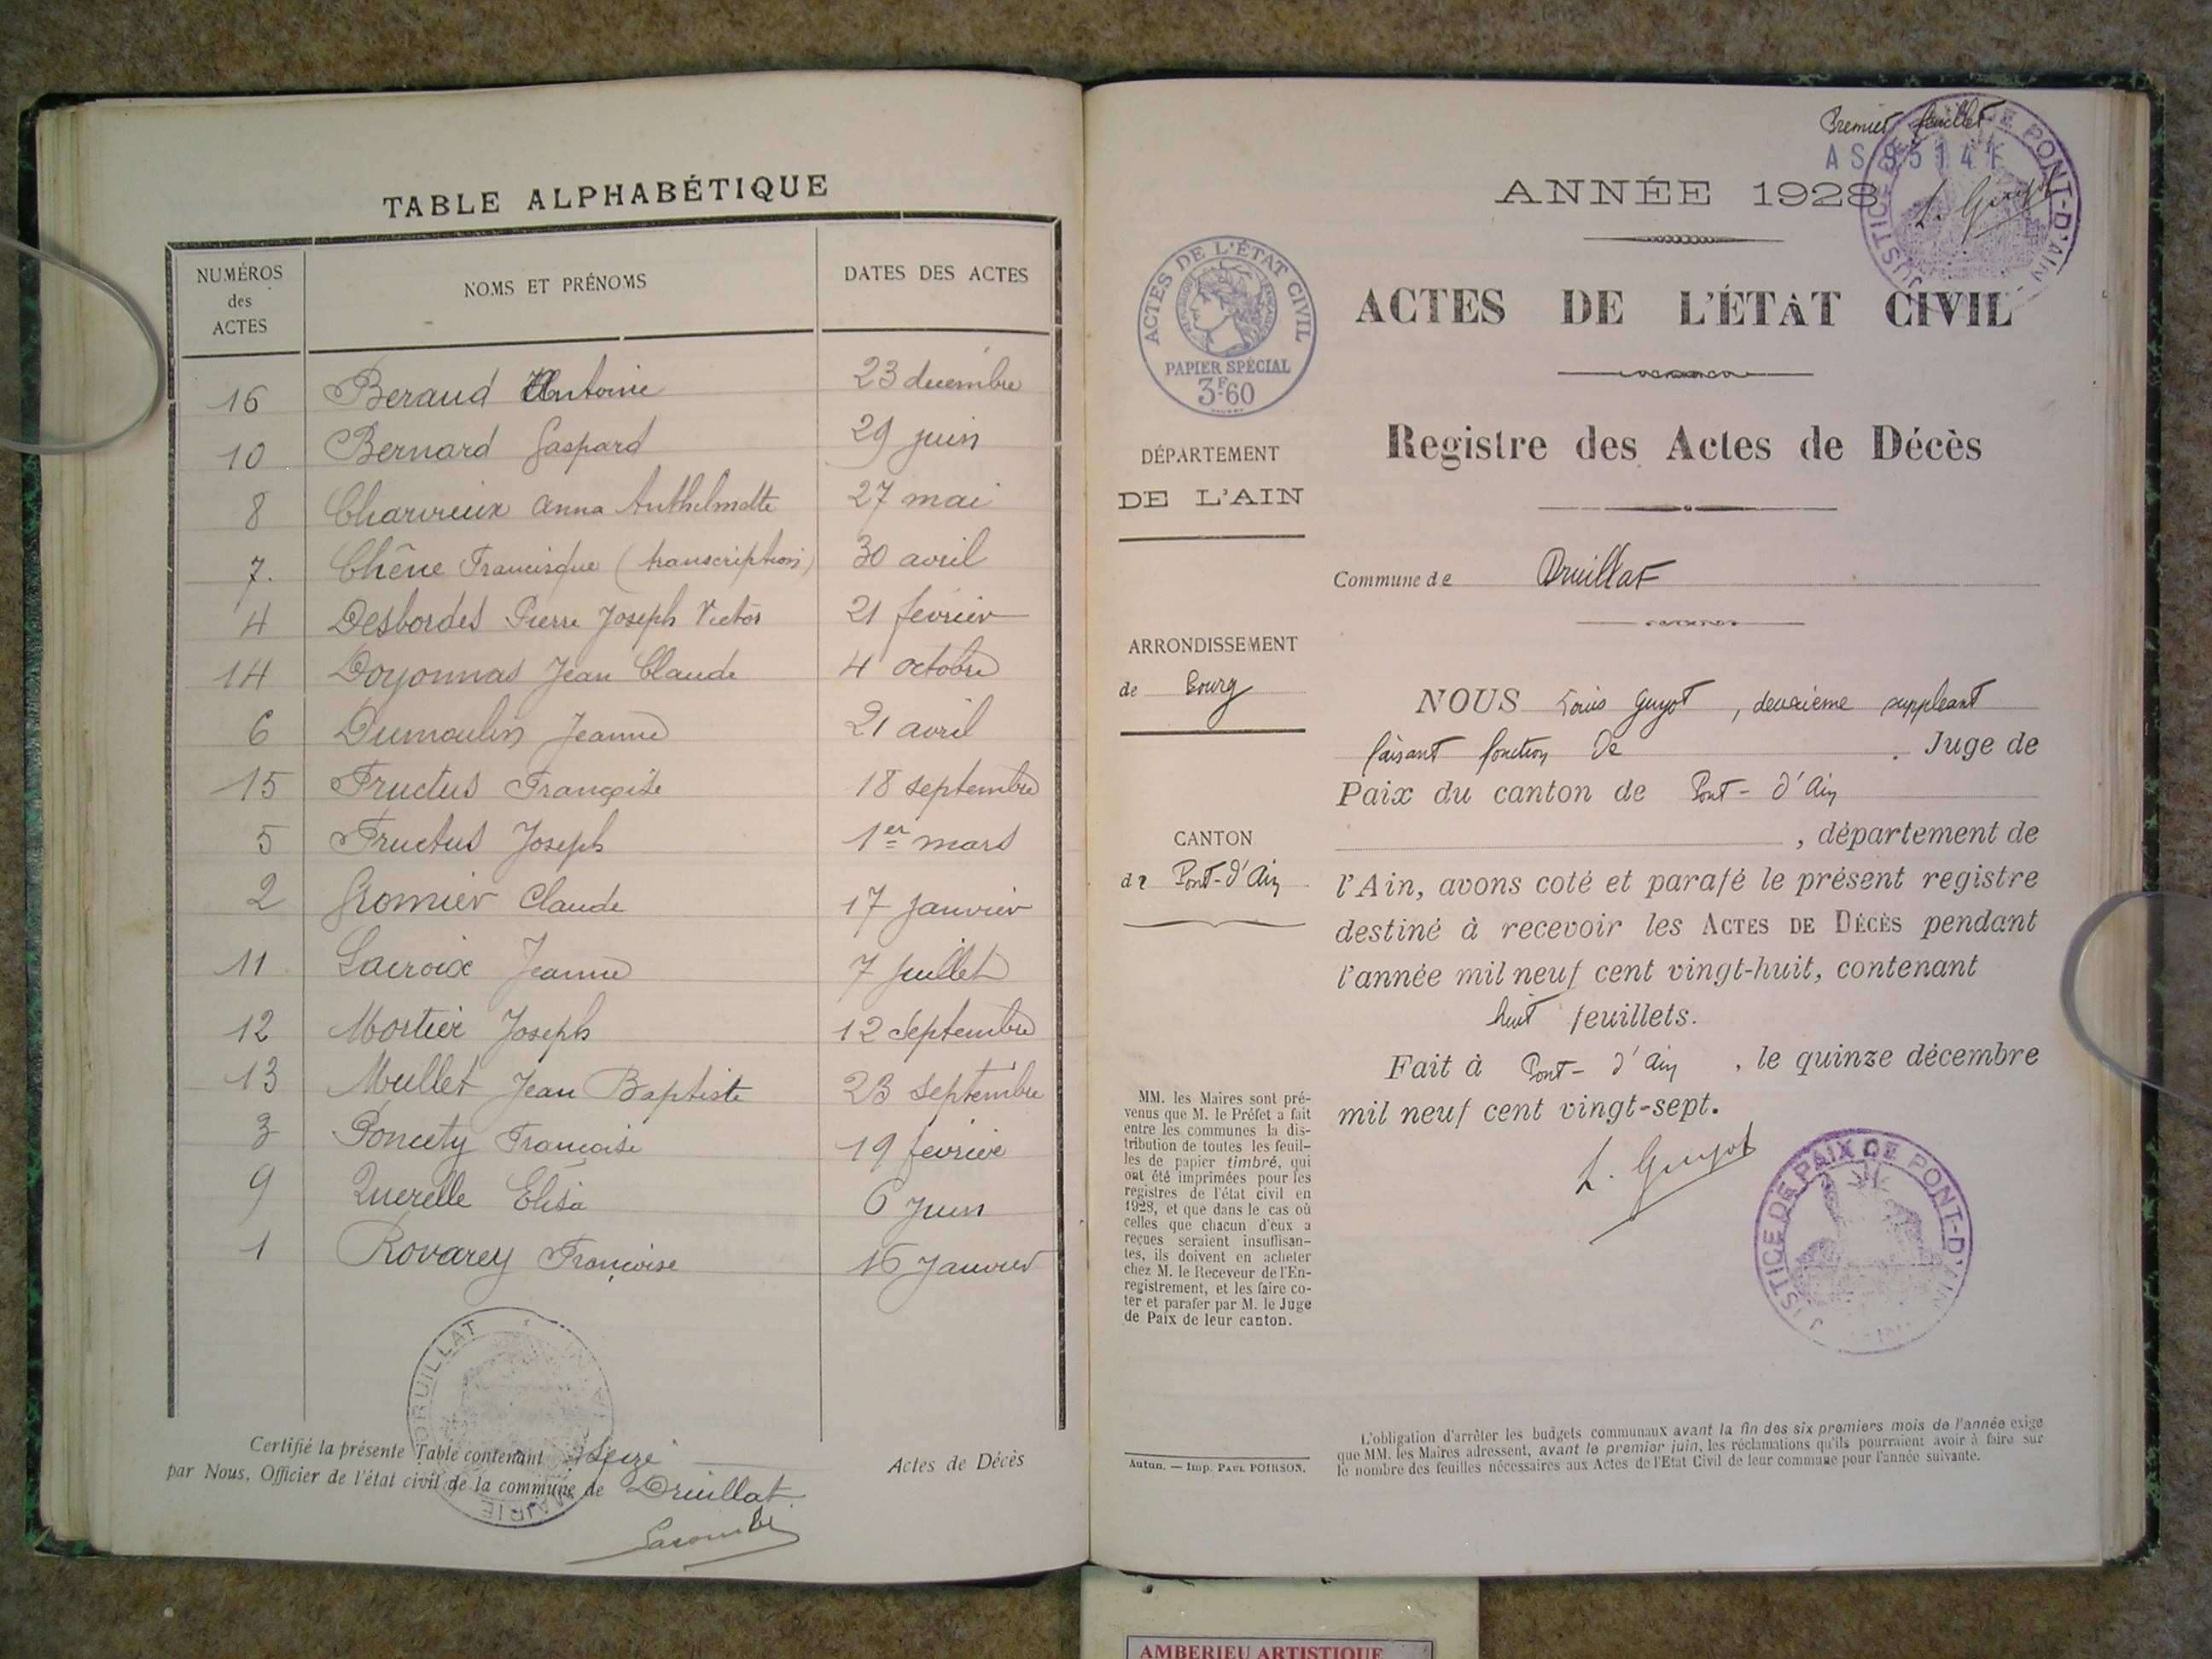 TABLE ALPHABÉTIQUE
NUMÉROS des ACTES NOMS ET PRÉNOMS DATES DES ACTES
16 Beraud Antoine 23 decembre
10 Bernard Gaspard 29 juin
8 Charvieux Anna Anthelmette 27 mai
7. Chêne Francisque (transcription) 30 avril
4 Desbordes Pierre Joseph Victor 21 fevrier
14 Doyonnas Jean Claude 4 octobre
6 Dumoulin Jeanne 21 avril
15 Fructus Françoise 18 septembre
5 Fructus Joseph 1er mars
2 Gromier Claude 17 Janvier
11 Lacroix Jeanne 7 Juillet
12 Mortier Joseph 12 Septembre
13 Mullet Jean Baptiste 23 Septembre
3 Poncety Francoise 19 fevrier
9 Querelle Elisa 6 Juin
1 Rovarey Francoise 16 Janvier
Certifié la présente Table contenant Seize Actes de Décès
par Nous, Officier de l'état civil de la commune de Druillat
DRUILLAT
MAIRIE
Premier feuillet
ANNÉE 1928
L. Guyot
JUSTICE DE PAIX DE PONT-D'AIN
ACTES DE L'ÉTAT CIVIL
RÉPUBLIQUE FRANÇAISE
PAPIER SPÉCIAL
3F.60
ACTES DE L'ÉTAT CIVIL
Registre des Actes de Décès
DÉPARTEMENT
DE L'AIN
Commune de Druillat
ARRONDISSEMENT
de Bourg
NOUS Louis Guyot, deuxième suppleant
faisant fonction de . Juge de
Paix du canton de Pont-d'Ain
, département de
CANTON
de Pont-d'Ain
l'Ain, avons coté et parafé le présent registre
destiné à recevoir les ACTES DE DÉCÈS pendant
l'année mil neuf cent vingt-huit, contenant
huit feuillets.
Fait à Pont-d'Ain, le quinze décembre
mil neuf cent vingt-sept.
L. Guyot
JUSTICE DE PAIX DE PONT-D'AIN
MM. les Maires sont pré-
venus que M. le Préfet a fait
entre les communes la dis-
tribution de toutes les feuil-
les de papier timbré, qui
ont été imprimées pour les
registres de l'état civil en
1928, et que dans le cas où
celles que chacun d'eux a
reçues seraient insuffisan-
tes, ils doivent en acheter
chez M. le Receveur de l'En-
registrement, et les faire co-
ter et parafer par M. le Juge
de Paix de leur canton.
Autun. — Imp. PAUL POIRSON.
L'obligation d'arrêter les budgets communaux avant la fin des six premiers mois de l'année exige
que MM. les Maires adressent, avant le premier juin, les réclamations qu'ils pourraient avoir à faire sur
le nombre des feuilles nécessaires aux Actes de l'Etat Civil de leur commune pour l'année suivante.
AMBERIEU ARTISTIQUE